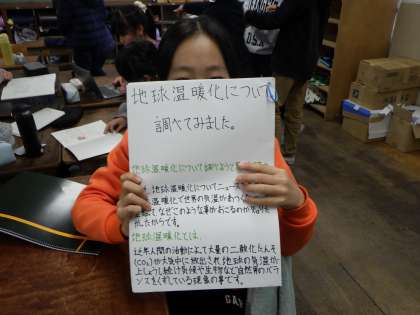 地球温暖化について
調べてみました。
地球温暖化について調べようと
地球温暖化についてニュー
温暖化で世界の気温があつく
なぜこのような事がおこるのか
たからです。
地球温暖化とは、
近年人間の活動によって大量の二酸化たんそ
(CO₂)が大気中に放出され地球の気温が
上しょうし続け気候や生物など自然界のバラ
ンスをくずしている現象の事です。